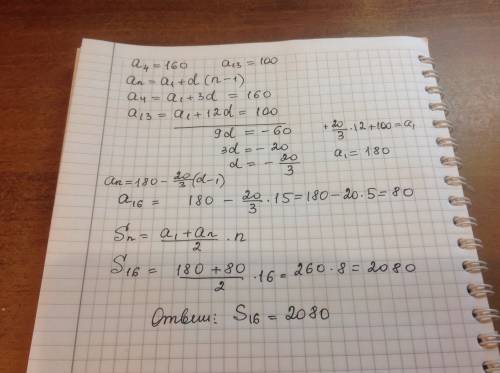 a₄ = 160 a₁₃ = 100
aₙ = a₁ + d (n-1)
a₄ = a₁ + 3d = 160
a₁₃ = a₁ + 12d = 100
9d = -60 +20/3 · 12 + 100 = a₁
3d = -20 a₁ = 180
d = -20/3
aₙ = 180 - 20/3 (d-1)
a₁₆ = 180 - 20/3 · 15 = 180 - 20 · 5 = 80
Sₙ = (a₁ + aₙ)/2 · n
S₁₆ = (180 + 80)/2 · 16 = 260 · 8 = 2080
Ответ: S₁₆ = 2080